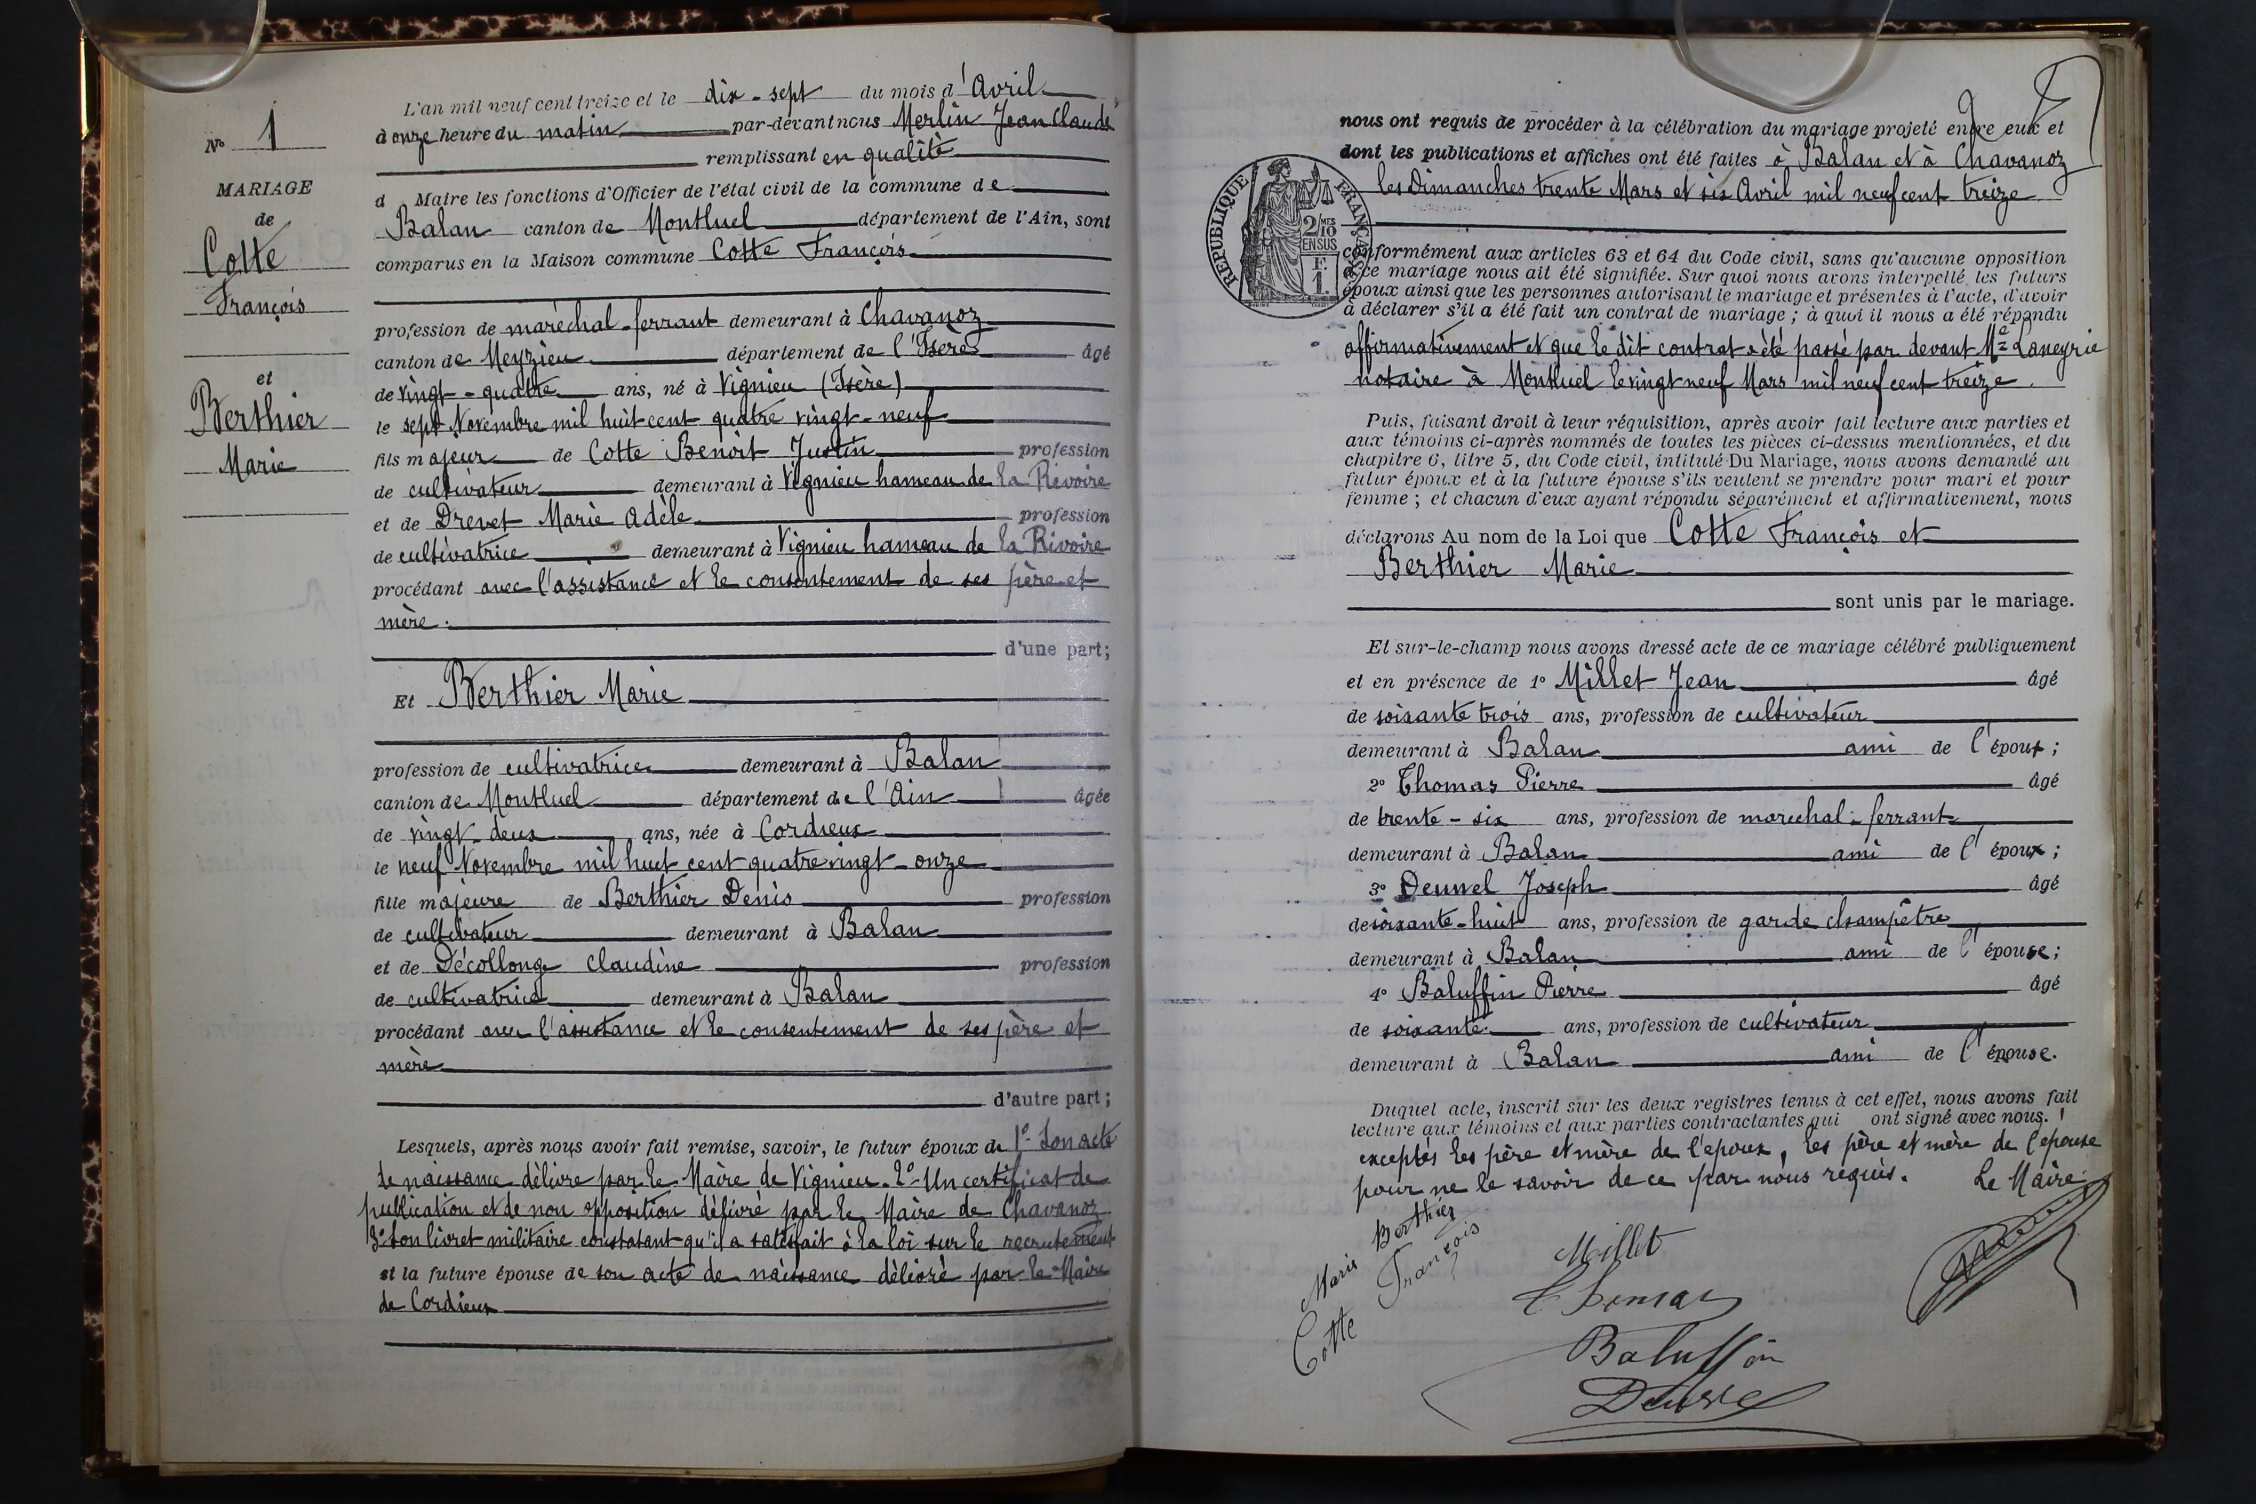 L'an mil neuf cent treize et le dix-sept du mois d'Avril
à onze heure du matin par-devant nous Merlin Jean Claude
remplissant en qualité
d Maire les fonctions d'Officier de l'état civil de la commune de
Balan canton de Montluel département de l'Ain, sont
comparus en la Maison commune Cotte François
profession de maréchal-ferrant demeurant à Chavanoz
canton de Meyzieu département de l'Isère âgé
de vingt-quatre ans, né à Vignieu (Isère)
le sept Novembre mil huit cent quatre vingt-neuf
fils majeur de Cotte Benoit Justin profession
de cultivateur demeurant à Vignieu hameau de la Rivoire
et de Drevet Marie Adèle profession
de cultivatrice demeurant à Vignieu hameau de la Rivoire
procédant avec l'assistance et le consentement de ses père et
mère.
d'une part;
Et Berthier Marie
profession de cultivatrice demeurant à Balan
canton de Montluel département de l'Ain âgée
de vingt-deux ans, née à Cordieux
le neuf Novembre mil huit cent quatre vingt-onze
fille majeure de Berthier Denis profession
de cultivateur demeurant à Balan
et de Décollonge Claudine profession
de cultivatrice demeurant à Balan
procédant avec l'assistance et le consentement de ses père et
mère
d'autre part;
Lesquels, après nous avoir fait remise, savoir, le futur époux de 1º Son acte
de naissance délivré par le Maire de Vignieu. 2º Un certificat de
publication et de non opposition délivré par le Maire de Chavanoz
3º Son livret militaire constatant qu'il a satisfait à la loi sur le recrutement
et la future épouse de son acte de naissance délivré par le Maire
de Cordieux
Nº 1
MARIAGE
de
Cotte
François
et
Berthier
Marie
nous ont requis de procéder à la célébration du mariage projeté entre eux et
dont les publications et affiches ont été faites à Balan et à Chavanoz
les Dimanches trente Mars et six Avril mil neuf cent treize
RÉPUBLIQUE FRANÇAISE
2/10
MES
EN SUS
F.
1.
conformément aux articles 63 et 64 du Code civil, sans qu'aucune opposition
à ce mariage nous ait été signifiée. Sur quoi nous avons interpellé les futurs
époux ainsi que les personnes autorisant le mariage et présentes à l'acte, d'avoir
à déclarer s'il a été fait un contrat de mariage; à quoi il nous a été répondu
affirmativement et que le dit contrat a été passé par devant Me Laneyrie
notaire à Montluel le vingt neuf Mars mil neuf cent treize.
Puis, faisant droit à leur réquisition, après avoir fait lecture aux parties et
aux témoins ci-après nommés de toutes les pièces ci-dessus mentionnées, et du
chapitre 6, titre 5, du Code civil, intitulé Du Mariage, nous avons demandé au
futur époux et à la future épouse s'ils veulent se prendre pour mari et pour
femme; et chacun d'eux ayant répondu séparément et affirmativement, nous
déclarons Au nom de la Loi que Cotte François et
Berthier Marie
sont unis par le mariage.
Et sur-le-champ nous avons dressé acte de ce mariage célébré publiquement
et en présence de 1º Millet Jean âgé
de soixante trois ans, profession de cultivateur
demeurant à Balan ami de l'époux;
2º Thomas Pierre âgé
de trente-six ans, profession de marechal-ferrant
demeurant à Balan ami de l'époux;
3º Deunel Joseph âgé
de soixante-huit ans, profession de garde champêtre
demeurant à Balan ami de l'épouse;
4º Baluffin Pierre âgé
de soixante ans, profession de cultivateur
demeurant à Balan ami de l'épouse.
Duquel acte, inscrit sur les deux registres tenus à cet effet, nous avons fait
lecture aux témoins et aux parties contractantes qui ont signé avec nous.
exceptés les père et mère de l'époux, les père et mère de l'épouse
pour ne le savoir de ce par nous requis. Le Maire
Marie Berthier
Cotte François
Millet
Thomas
Baluffin